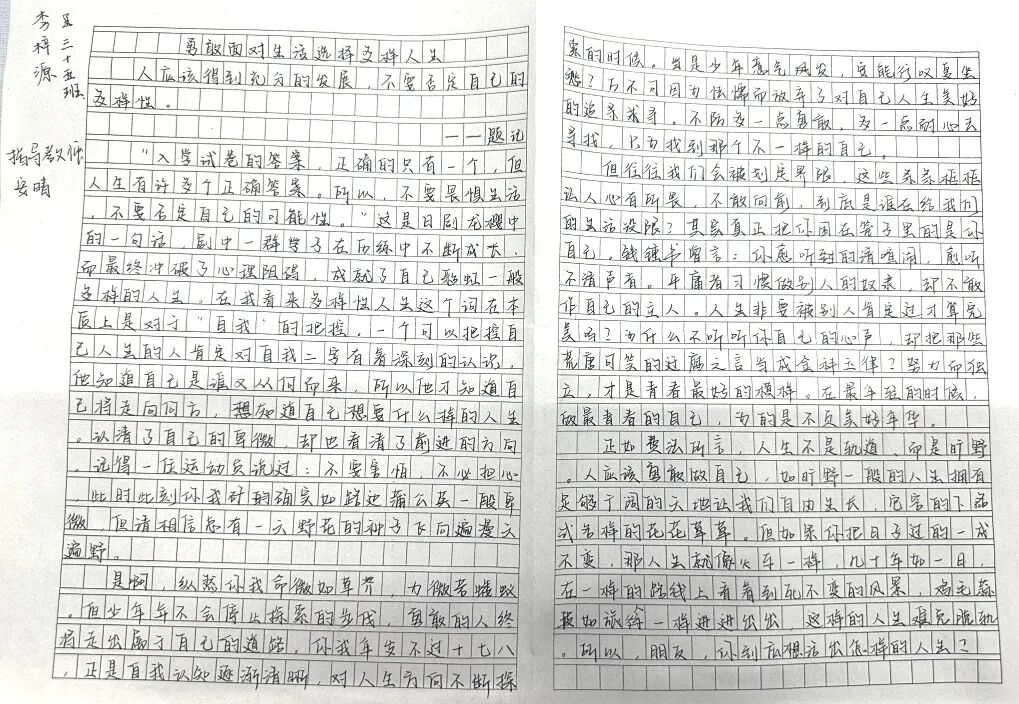 李梓源
高三十五班
指导教师
安晴
勇敢面对生活选择多样人生
人应该得到充分的发展，不要否定自己的
多样性。
——题记
“入学试卷的答案，正确的只有一个，但
人生有许多个正确答案。所以，不要畏惧生活
，不要否定自己的可能性。”这是日剧龙樱中
的一句话，剧中一群学子在历练中不断成长，
而最终冲破了心理阻碍，成就了自己彩虹一般
多样的人生。在我看来多样性人生这个词在本
质上是对于“自我”的把控，一个可以把控自
己人生的人肯定对自我二字有着深刻的认识，
他知道自己是谁又从何而来，所以他才知道自
己将走向何方，想知道自己想要什么样的人生
。认清了自己的卑微，却也看清了前进的方向
。记得一位运动员说过：不要害怕，不必担心
，此时此刻你我的确实如路边蒲公英一般卑
微，但请相信总有一天野花的种子飞向遍漫天
遍野。
是啊，纵然你我命微如草芥，力微若蝼蚁
。但少年年不会停止探索的步伐，勇敢的人终
将走出属于自己的道路。你我年岁不过十七八
，正是自我认知逐渐清晰，对人生方向不断探
索的时候。当是少年意气风发，岂能行叹复坐
愁？万不可因为怯懦而放弃了对自己人生美好
的追求找寻。不防多一点勇敢，多一点耐心去
寻找，只为找到那个不一样的自己。
但往往我们会被划定界限，这些条条框框
让人心有所畏，不敢向前，到底是谁在给我们
的生活设限？其实真正把你困在笼子里的是你
自己。钱锺书曾言：你愈听到的清喧闹，愈听
不清声音。平庸者习惯做别人的奴隶，却不敢
作自己的主人。人生非要被别人肯定过才算完
美吗？为什么不听听你自己的心声，却把那些
荒唐可笑的迂腐之言当成金科玉律？努力而独
立，才是青春最好的模样。在最年轻的时候，
做最青春的自己，为的是不负美好年华。
正如费法所言，人生不是轨道，而是旷野
。人应该勇敢做自己，如旷野一般的人生拥有
足够广阔的天地让我们自由生长，它容的下各
式各样的花花草草。但如果你把日子过的一成
不变，那人生就像火车一样，几十年如一日，
在一样的路线上看着到死不变的风景，鸡毛蒜
皮如旅客一样进进出出，这样的人生难免脱轨
。所以，朋友，你到底想活出怎样的人生？